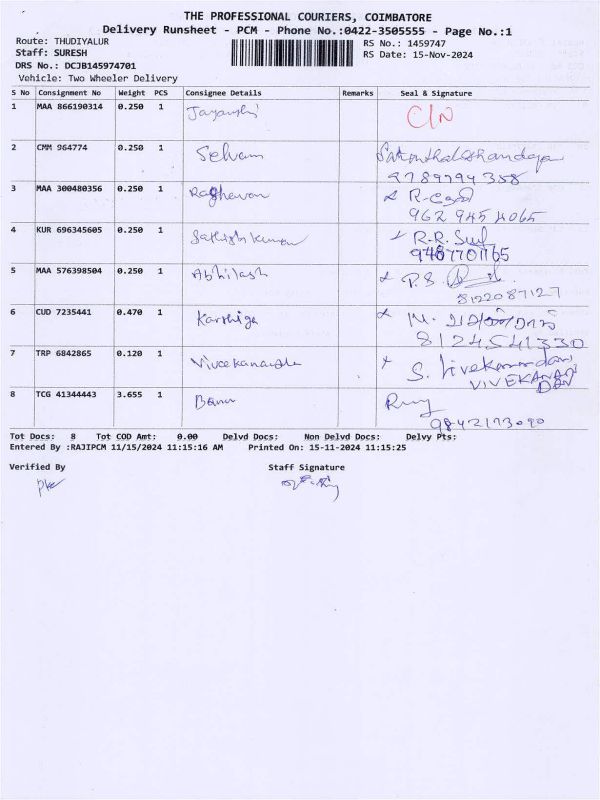 THE PROFESSIONAL COURIERS, COIMBATORE
Delivery Runsheet - PCM - Phone No.:0422-3505555 - Page No.:1
Route: THUDIYALUR
Staff: SURESH
DRS No.: DCJB145974701
Vehicle: Two Wheeler Delivery
RS No.: 1459747
RS Date: 15-Nov-2024
S No Consignment No Weight PCS Consignee Details Remarks Seal & Signature
1 MAA 866190314 0.250 1 C/N
2 CMM 964774 0.250 1 Selvam
9789794358
3 MAA 300480356 0.250 1 Raghavan
962 945 4065
4 KUR 696345605 0.250 1 Sathishkumar R.R.
9487701165
5 MAA 576398504 0.250 1 Abhilash P.S.
8122087127
6 CUD 7235441 0.470 1 Karthiga M.
8124541330
7 TRP 6842865 0.120 1 Vivekananda S. Vivekanandan
VIVEKANAN
DAN
8 TCG 41344443 3.655 1 Banu
9842173090
Tot Docs: 8 Tot COD Amt: 0.00 Delvd Docs: Non Delvd Docs: Delvy Pts:
Entered By :RAJIPCM 11/15/2024 11:15:16 AM Printed On: 15-11-2024 11:15:25
Verified By Staff Signature